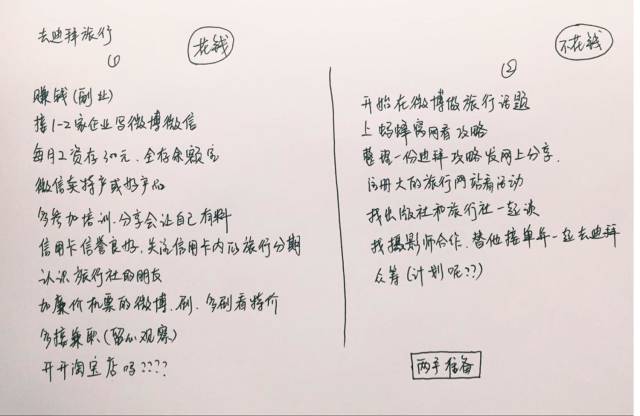 去迪拜旅行
花钱
①
赚钱(副业)
接1-2家企业写微博微信
每月工资存30元、全存余额宝
微信卖特产或好产品
多参加培训、分享会让自己有料
信用卡信誉良好、关注信用卡内的旅行分期
认识旅行社的朋友
加廉价机票的微博、刷、多刷看特价
多接兼职(留心观察)
开开淘宝店吗????
不花钱
②
开始在微博做旅行话题
上蚂蜂窝网看攻略
整理一份迪拜攻略发网上分享.
注册大的旅行网站看活动
找出版社和旅行社一起谈
找摄影师合作、替他接单并一起去迪拜
众筹(计划呢??)
两手准备